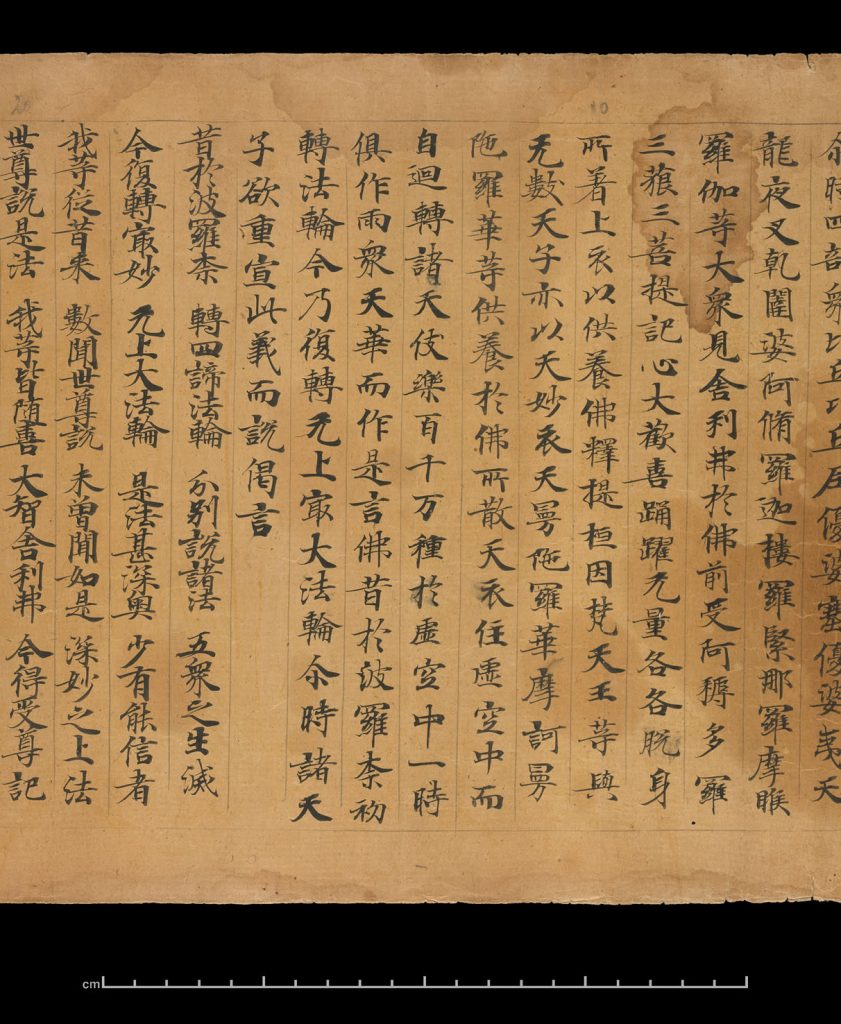 尒時四部衆比丘比丘尼優婆塞優婆夷天
龍夜叉乹闥婆阿脩羅迦樓羅緊那羅摩睺
羅伽等大衆見舍利弗於佛前受阿耨多羅
三藐三菩提記心大歡喜踊躍无量各各脫身
所著上衣以供養佛釋提桓因梵天王等與
无數天子亦以天妙衣天曼陁羅華摩訶曼
陁羅華等供養於佛所散天衣住虛空中而
自迴轉諸天伎樂百千万種於虛空中一時
俱作雨衆天華而作是言佛昔於波羅柰初
轉法輪今乃復轉无上冣大法輪尒時諸天
子欲重宣此義而說偈言
昔於波羅柰 轉四諦法輪 分別說諸法 五衆之生滅
今復轉冣妙 无上大法輪 是法甚深奧 少有能信者
我等從昔来 數聞世尊說 未曾聞如是 深妙之上法
世尊說是法 我等皆随喜 大智舍利弗 今得受尊記
10
20
cm